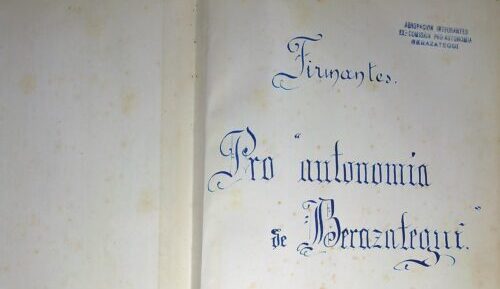 AGRUPACION INTEGRANTES
EX-COMISION PRO AUTONOMIA
BERAZATEGUI
Firmantes.
Pro "autonomia
de Berazategui."